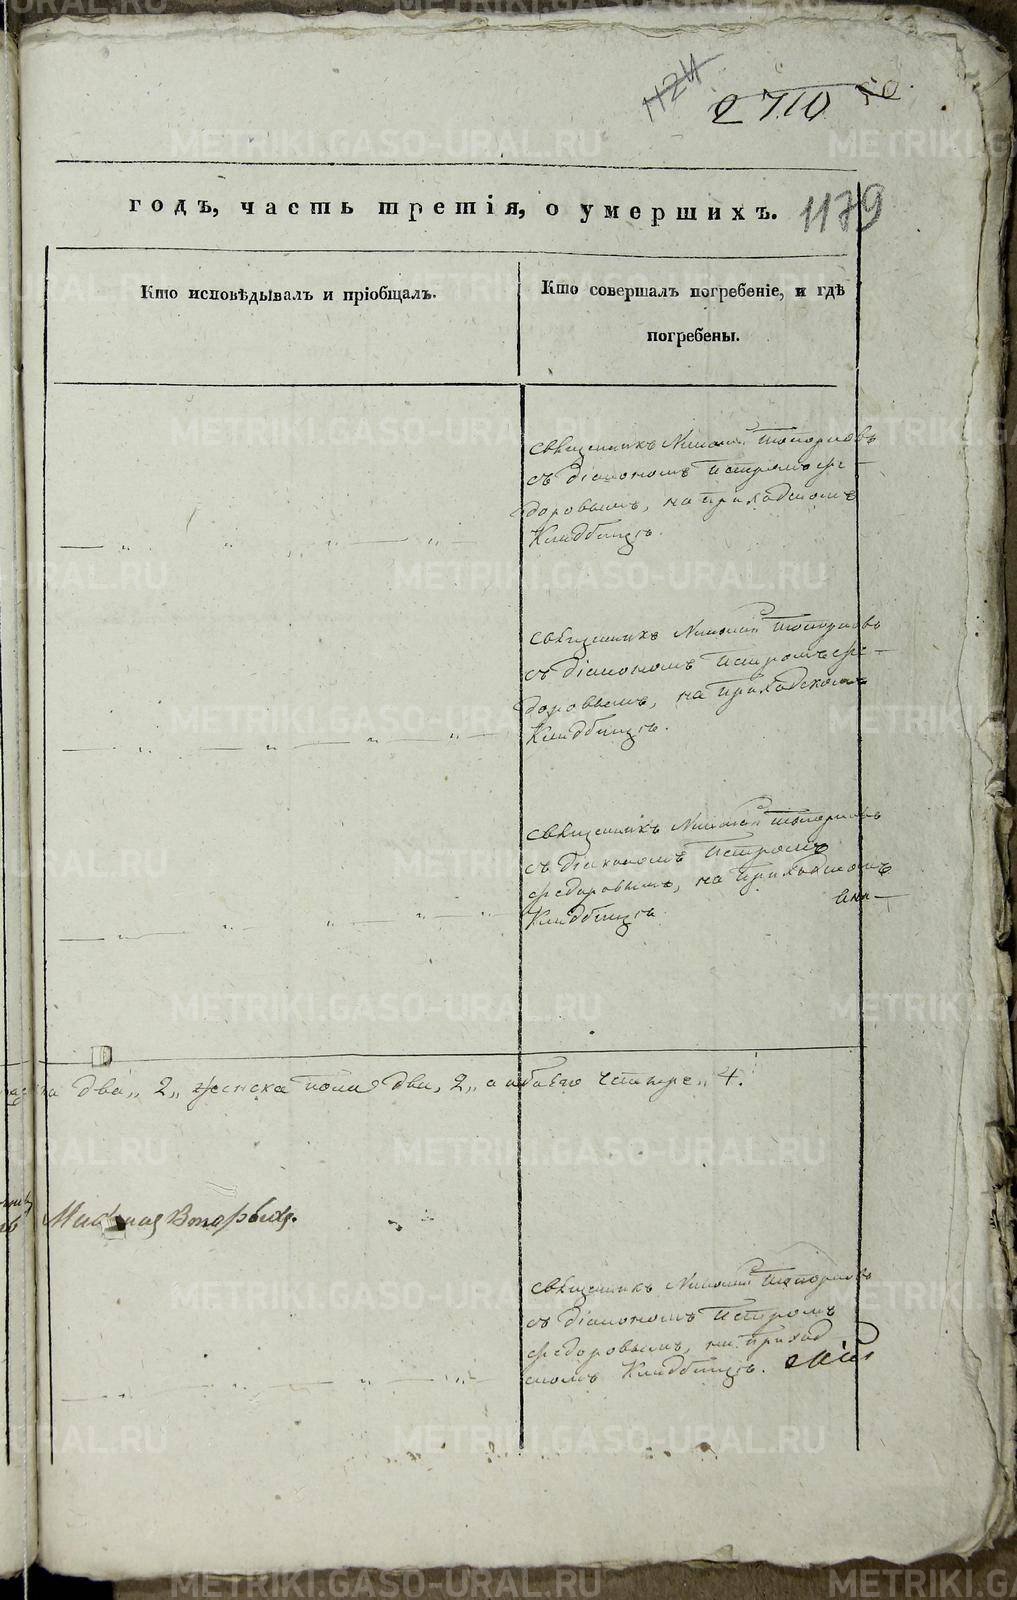 1124
2710
50.
годъ, часть третія, о умершихъ.
1179
Кто исповѣдывалъ и пріобщалъ.
Кто совершалъ погребеніе, и гдѣ
погребены.
священникъ Николай Топорковъ
съ діакономъ Петромъ Фе-
доровымъ, на приходскомъ
Кладбищѣ.
священникъ Николай Топорковъ
съ діакономъ Петромъ Фе-
доровымъ, на приходскомъ
Кладбищѣ.
священникъ Николай Топорковъ
съ діакономъ Петромъ
Федоровымъ, на приходскомъ
Кладбищѣ.
два „ 2 „ женска пола две, 2 „ а обоего четыре „ 4.
Вторыхъ.
священникъ Николай Топорковъ
съ діакономъ Петромъ
Федоровымъ, на приход
скомъ Кладбищѣ.
METRIKI.GASO-URAL.RU